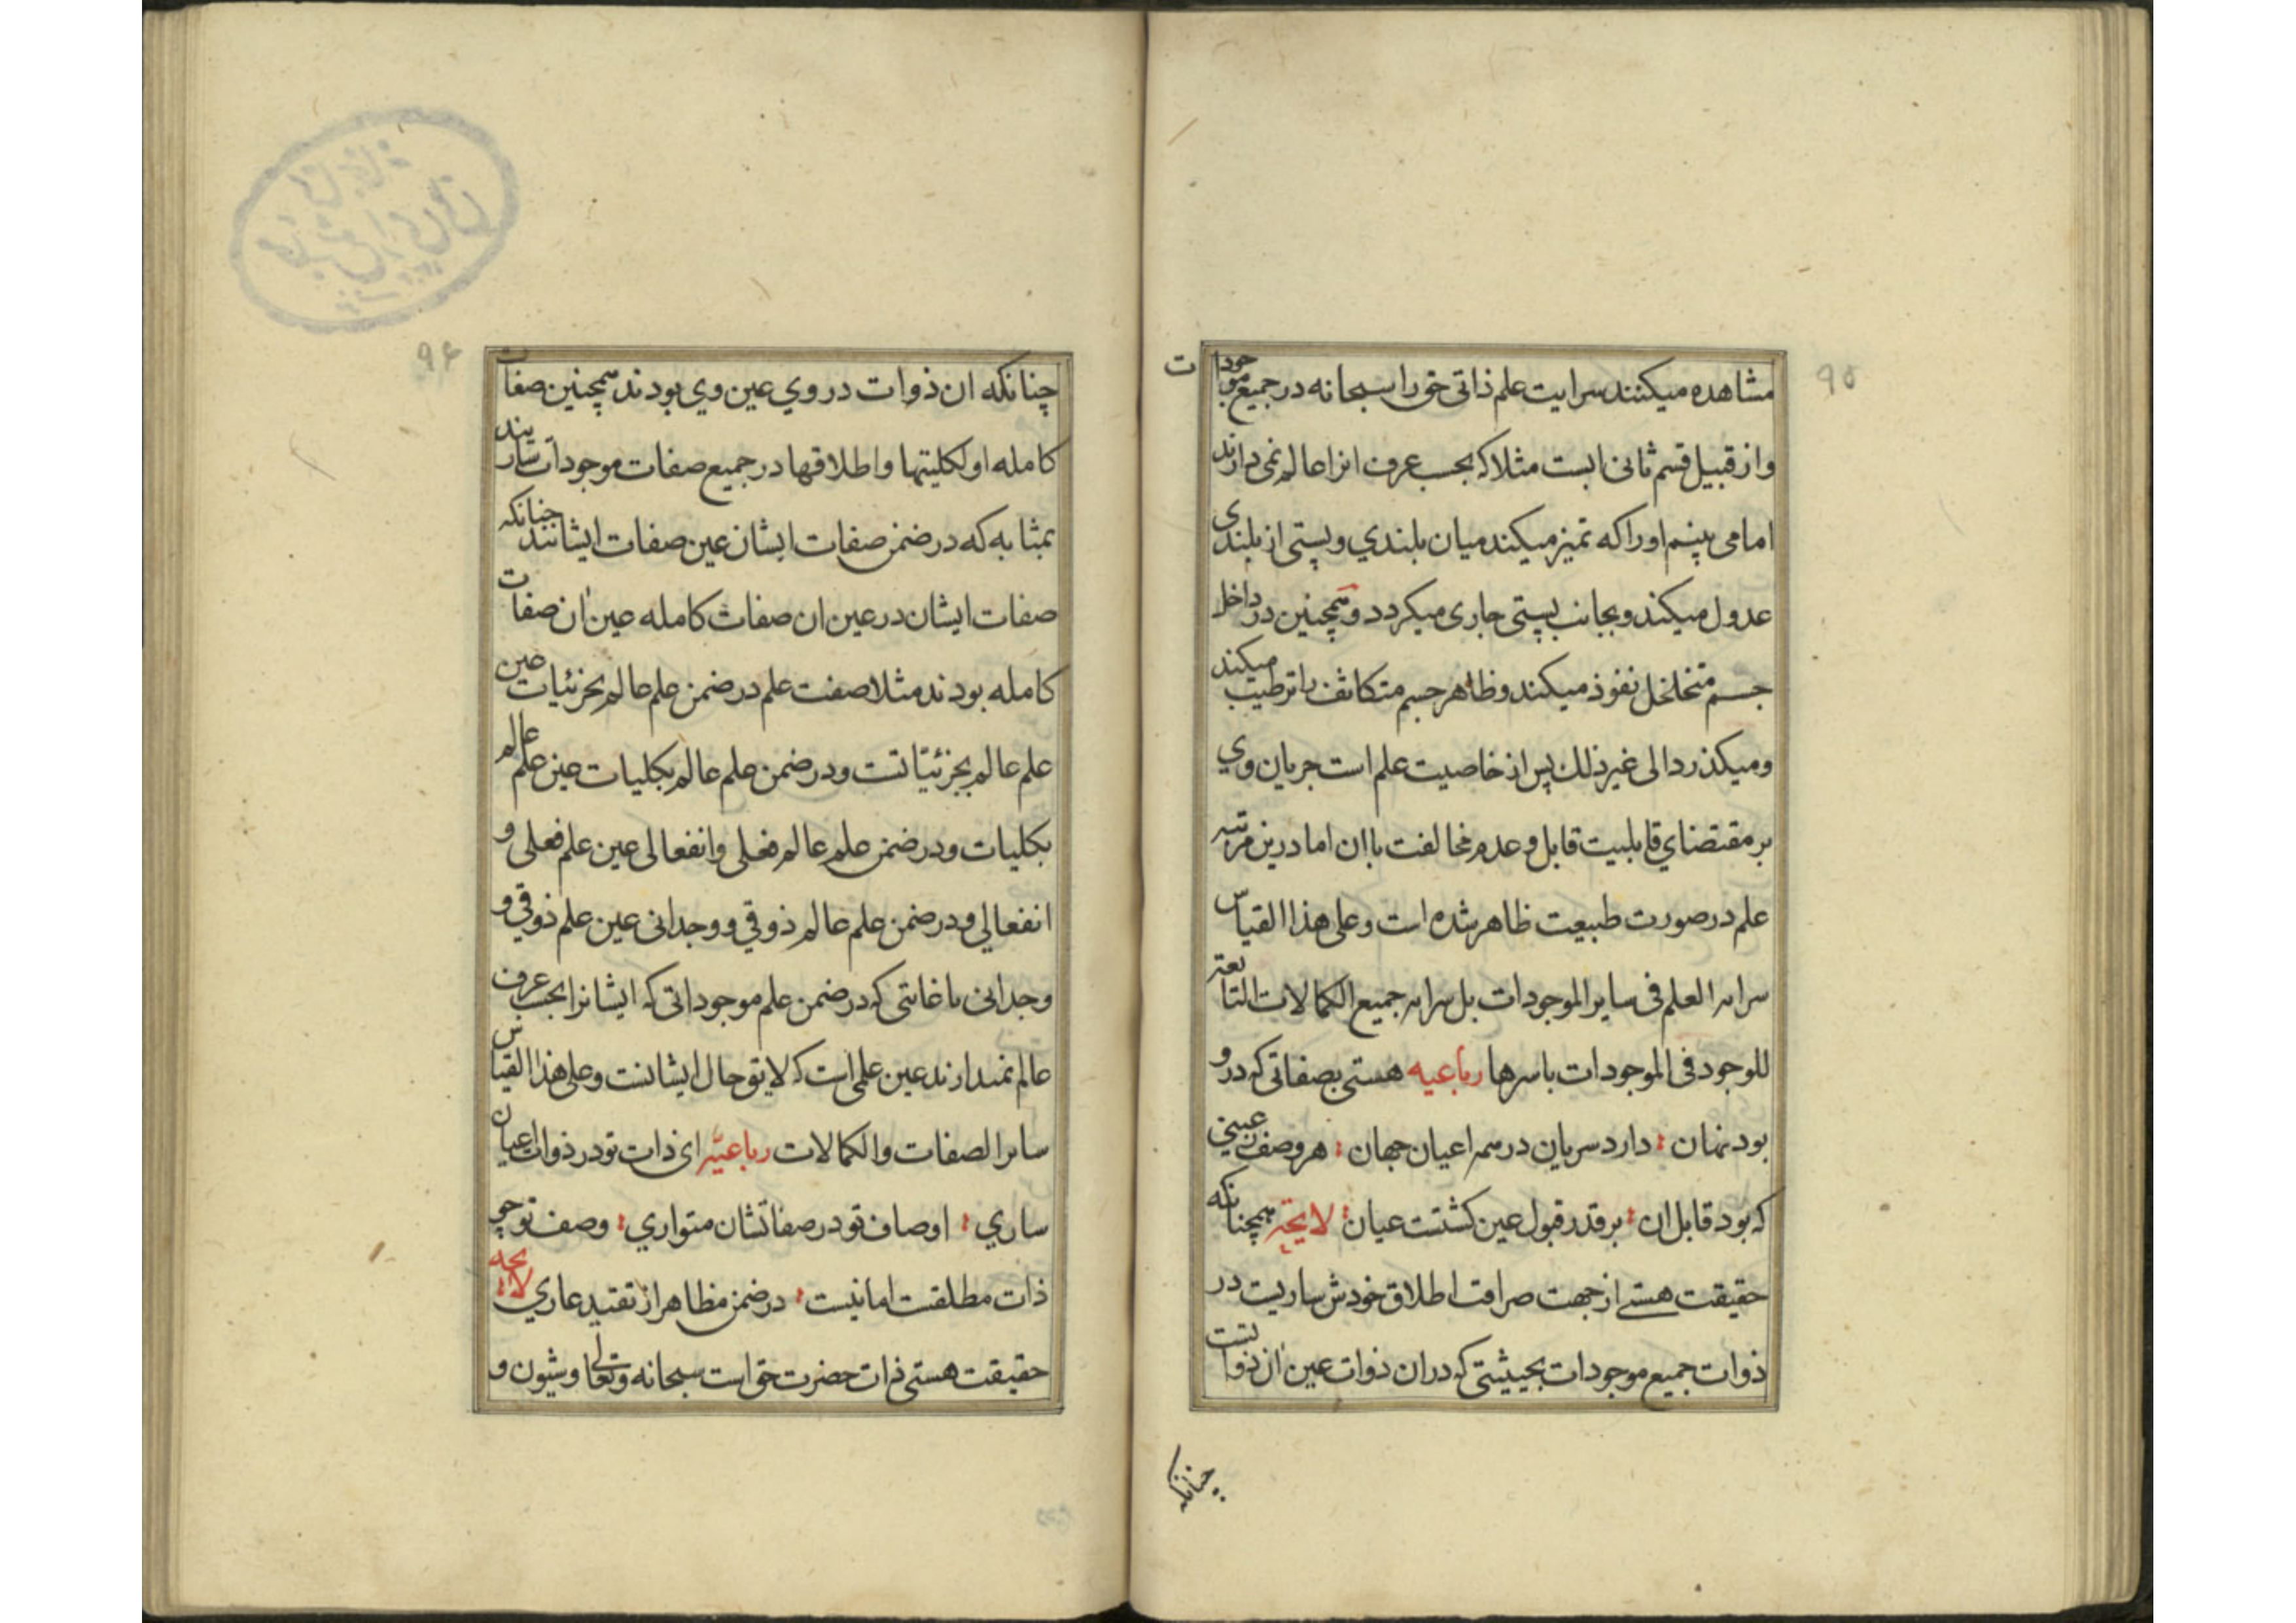 ٩٥
مشاهده میکنند سرایت علم ذاتی حق را سبحانه در جمیع موجودات
و از قبیل قسم ثانی ابست مثلا که بحسب عرف انرا عالم نمی دارند
اما می بینم او را که تمیز میکند میان بلندي و پستی از بلندی
عدول میکند و بجانب پستی جاری میکردد و همچنین در داخل
جسم متخلخل نفوذ میکند و ظاهر جسم متکاثف را ترطیب میکند
و میکذرد الی غیر ذلك پس از خاصیت علم است جریان وي
بر مقتضناي قابلیت قابل و عدم مخالفت با ان اما درین مرتبه
علم در صورت طبیعت ظاهر شده است و علی هذا القیاس
سرایه العلم فی سایر الموجودات بل سرایه جمیع الکمالات التابعة
للوجود فی الموجودات باسرها رباعیه هستی بصفاتی که درو
بود نهان ؛ دارد سریان در همه اعیان جهان ؛ هر وصف ز عینی
که بود قابل ان ؛ بر قدر قبول عین کشتست عیان ؛ لایحة همچنانکه
حقیقت هستی از جهت صرافت اطلاق خودش ساریت در
ذوات جمیع موجودات بحیثیتی که در ان ذوات عین ان ذواتست
چنانکه
٩٤
چنانکه ان ذوات در وي عین وي بودند همچنین صفات
کامله او لکلیتها و اطلاقها در جمیع صفات موجودات سارند
بمثابه که در ضمن صفات ایشان عین صفات ایشانند چنانکه
صفات ایشان در عین ان صفات کامله عین ان صفات
کامله بودند مثلا صفت علم در ضمن علم عالم بجزئیات عین
علم عالم بجزئیاتست و در ضمن علم عالم بکلیات عین علم عالم
بکلیات و در ضمن علم عالم فعلی و انفعالی عین علم فعلی و
انفعالی و در ضمن علم عالم ذوقي و وجدانی عین علم ذوقي و
وجدانی تا غایتی که در ضمن علم موجوداتی که ایشانرا بحسب عرف
عالم نمیدارند عین علمی است که لایق حال ایشانست و علی هذا القیاس
سایر الصفات والکمالات رباعیّه ای ذات تو در ذوات اعیان
ساري ؛ اوصاف تو در صفاتشان متواري ؛ وصف تو چو
ذات مطلقست اما نیست ؛ در ضمن مظاهر از تقیید عاري لایحه
حقیقت هستی ذات حضرت حق است سبحانه وتعالی و شیون و